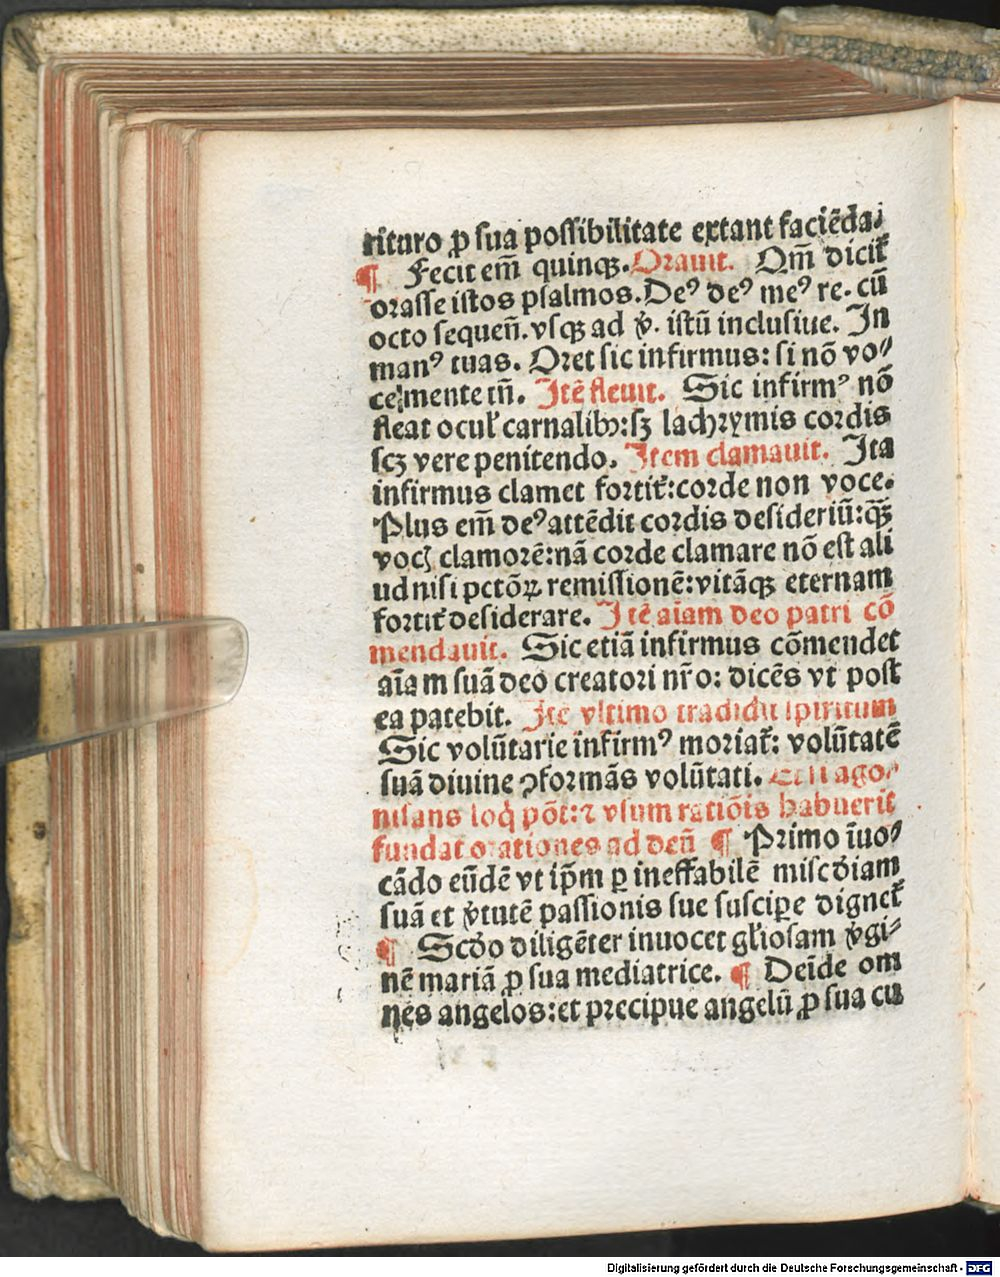 rituro ꝓ sua possibilitate extant faciēda.
¶ Fecit em̄ quinqꝫ. Orauit. Qm̄ dicit᷑
orasse istos psalmos. Deꝰ deꝰ meꝰ re. cū
octo sequen̄. vsqꝫ ad v̄. istū inclusiue. In
manꝰ tuas. Oret sic infirmus: si nō vo⸗
ce mente tn̄. Itē fleuit. Sic infirmꝰ nō
fleat ocul᷑ carnalibꝰ: sꝫ lachrymis cordis
scꝫ vere penitendo. Item clamauit. Ita
infirmus clamet fortit᷑: corde non voce.
Plus em̄ deꝰ attēdit cordis desideriū: qꝫ̄
vocꝭ clamorē: nā corde clamare nō est ali
ud nisi pctōꝝ remissionē: vitāqꝫ eternam
fortit᷑ desiderare. Itē aīam deo patri cō
mendauit. Sic etiā infirmus cōmendet
aīam suā deo creatori nr̄o: dicēs vt post
ea patebit. Itē vltimo tradidit spiritum
Sic volūtarie infirmꝰ moriat᷑: volūtatē
suā diuine ꝯformās volūtati. Et si ago⸗
nisans loq̄ pōt: ⁊ vsum ratiōis habuerit
fundat orationes ad deū ¶ Primo īuo⸗
cādo eūdē vt ip̄m ꝑ ineffabilē misc̄diam
suā et v̄tutē passionis sue suscipe dignet᷑
¶ Scd̄o diligēter inuocet gl̄iosam v̄gi⸗
nē mariā ꝓ sua mediatrice. ¶ Deīde om
nes angelos: et precipue angelū ꝓ sua cu
Digitalisierung gefördert durch die Deutsche Forschungsgemeinschaft - DFG